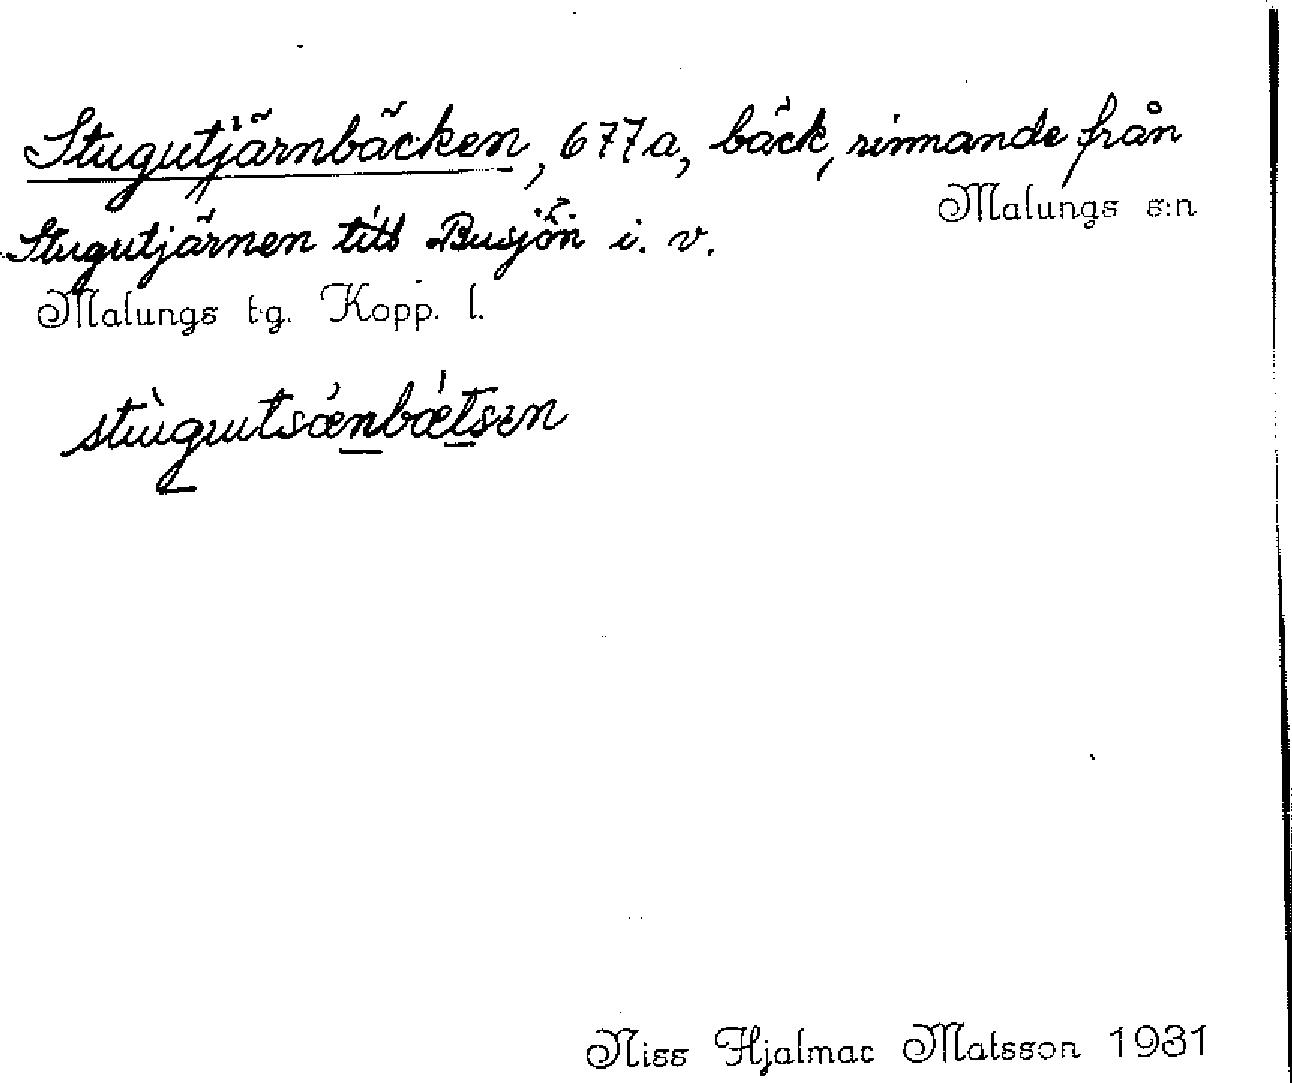 Stugutjärnbäcken, 677a, bäck, rinnande från
Malungs s:n
Stugutjärnen till Busjön i. v.
Malungs tg. Kopp. l.
Niss Hjalmar Matsson 1931